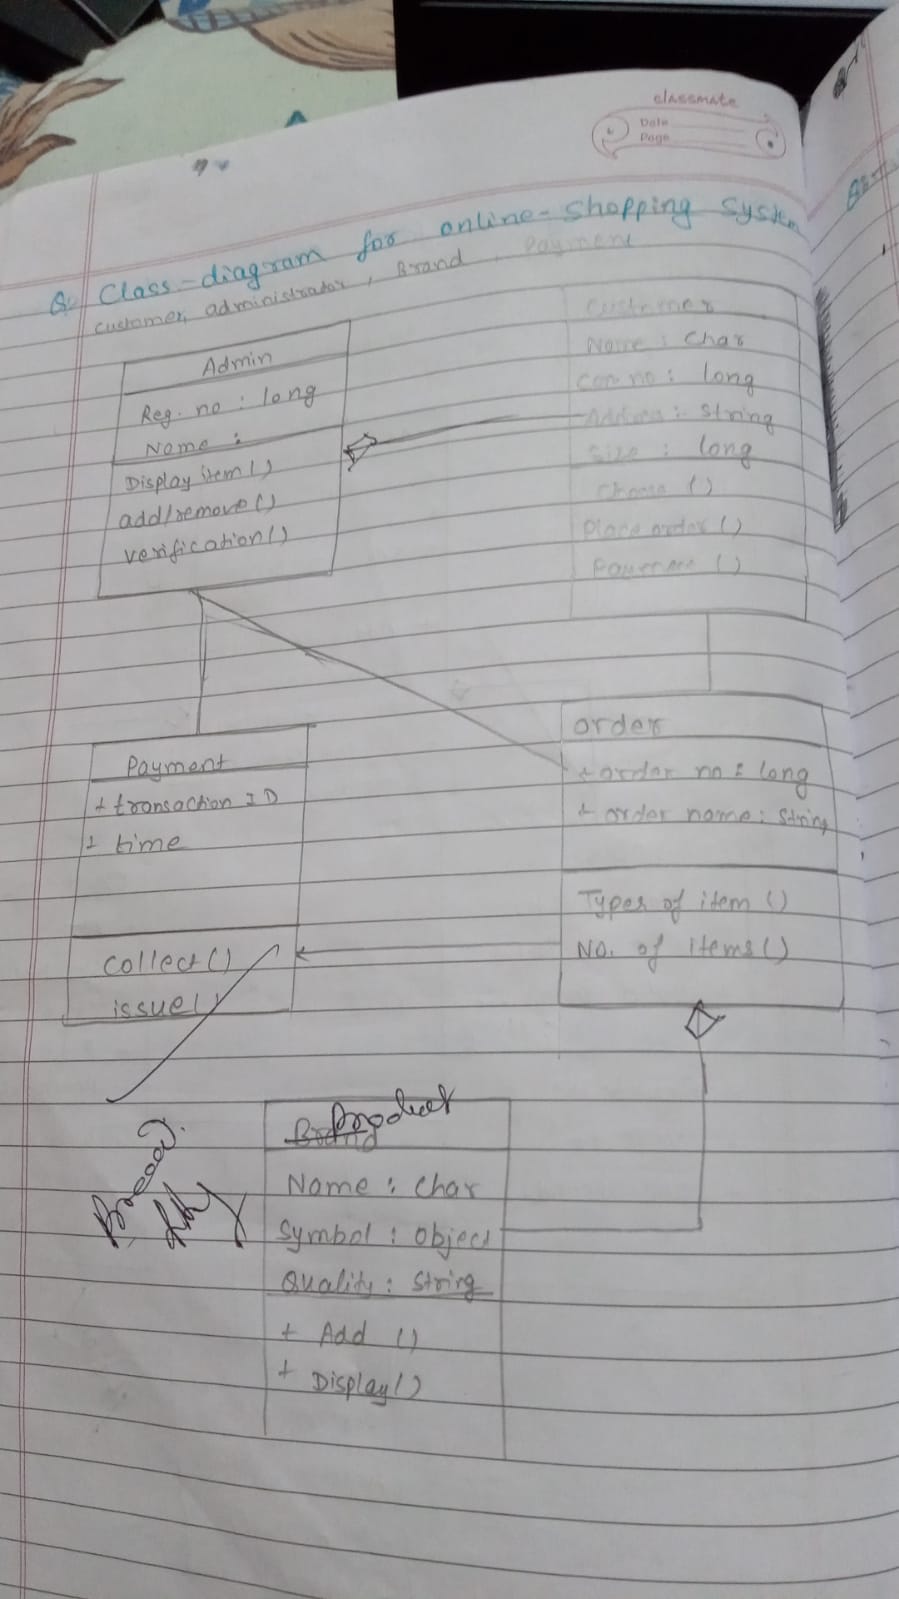 classmate
Date
Page
Q. Class-diagram for online-shopping System
customer, administrator, Brand, Payment
Admin
Reg. no : long
Name :
Display item()
add/remove()
verification()
Customer
Name : Char
Con no : long
Address : string
Size : long
Choose ()
Place order ()
Payment ()
Payment
+ transaction ID
+ time
collect()
issue()
order
+ order no : long
+ order name : String
Types of item ()
No. of items()
Product
Name : Char
Symbol : Object
Quality : String
+ Add ()
+ Display()